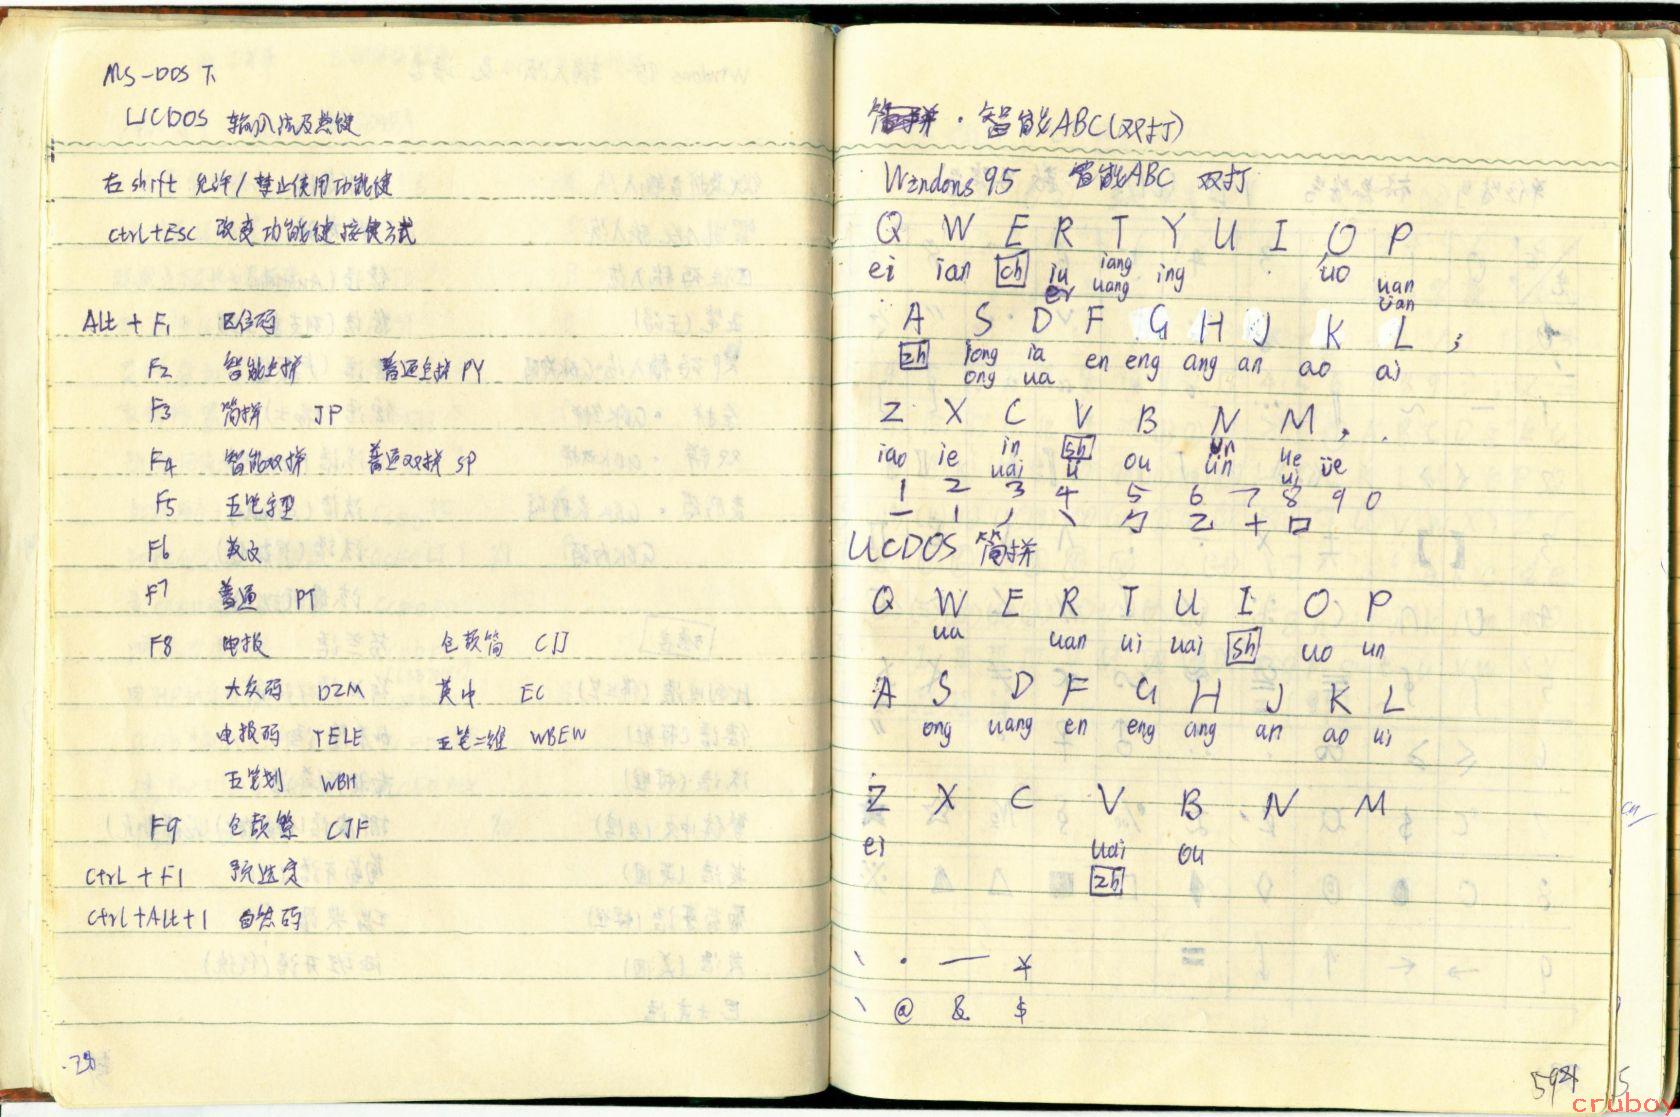 MS-DOS 下
UCDOS 输入法及热键
右 shift 允许/禁止使用功能键
ctrl+ESC 改变功能键按键方式
Alt + F1 区位码
F2 智能全拼 普通全拼 PY
F3 简拼 JP
F4 智能双拼 普通双拼 SP
F5 五笔字型
F6 英文
F7 普通 PT
F8 电报 仓颉简 CJJ
大众码 DZM 英中 EC
电报码 TELE 五笔二维 WBEW
五笔划 WBH
F9 仓颉繁 CJF
Ctrl + F1 预选定
Ctrl+Alt+1 自然码
简拼 · 智能ABC(双打)
Windows 95 智能ABC 双打
Q W E R T Y U I O P
ei ian ch iu iang ing uo uan
er uang üan
A S D F G H J K L ;
zh iong ia en eng ang an ao ai
ong ua
Z X C V B N M , .
iao ie in sh ou un ue üe
uai ü ün ui
1 2 3 4 5 6 7 8 9 0
一 丨 丿 丶 ㇆ 乙 十 口
UCDOS 简拼
Q W E R T U I O P
ua uan ui uai sh uo un
A S D F G H J K L
ong uang en eng ang an ao ai
Z X C V B N M
ei uai ou
zh
\ · — ¥
\ @ & $
cruboy